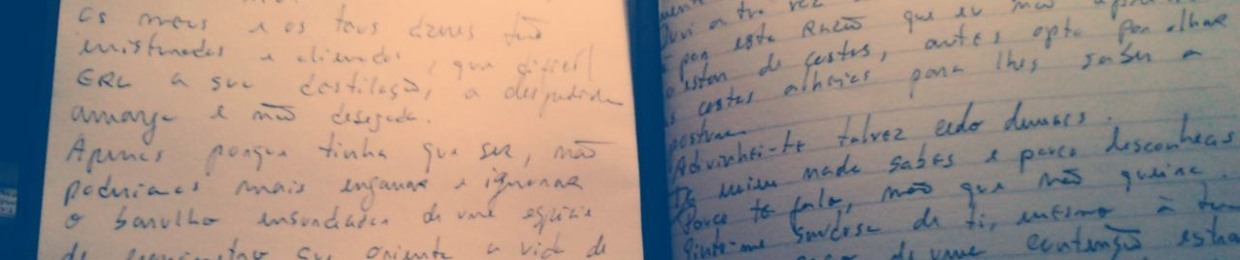 os meus e os teus
misturados e, que difícil
era a sua destilação, a despedida
amarga e não desejada.
Apenas porque tinha que ser, não
podíamos mais enganar e ignorar
o barulho ensurdecedor de uma espécie
de que orienta a vida de
Ouvi a tua voz que eu não
por esta Razão
estar de costas, antes opto por olhar
costas alheias para lhes saber a
postura
Advinhei-te talvez cedo demais.
De mim nada sabes e pouco desconheces
Pouco te falo, não que não queira.
Sinto-me de ti, mesmo à
de uma contenção